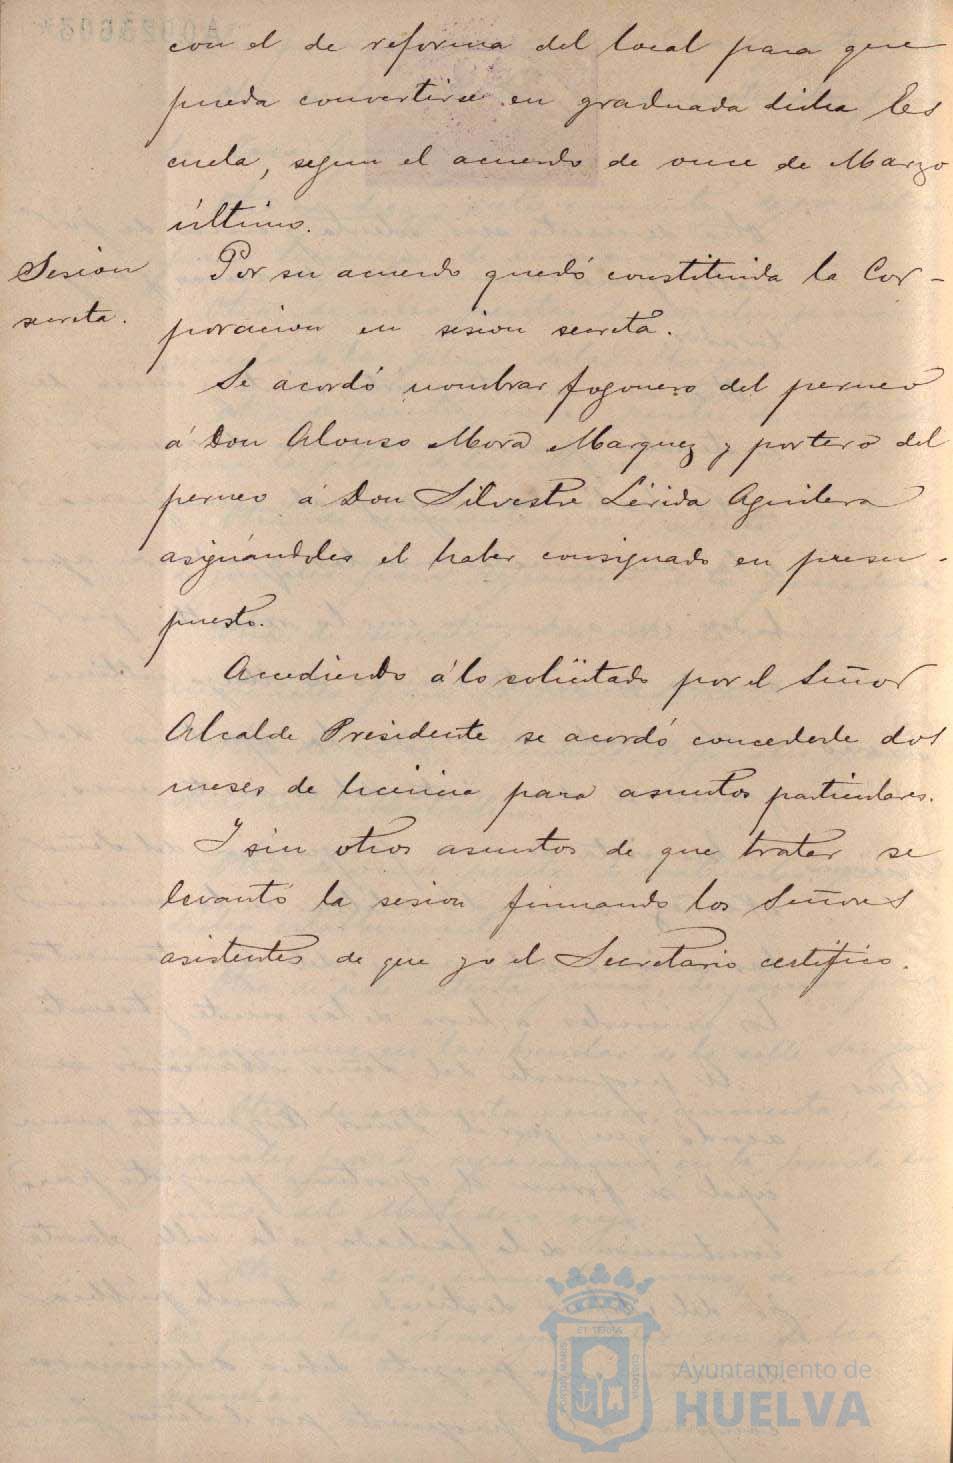 con el de reforma del local para que
pueda convertirse en graduada dicha Es
cuela, segun el acuerdo de once de Marzo
último.
Sesion
secreta.
Por su acuerdo quedó constituida la Cor-
poracion en sesion secreta.
Se acordó nombrar fogonero del perneo
á Don Alonso Mora Marquez y portero del
perneo á Don Silvestre Lérida Aguilera
asignándoles el haber consignado en presu-
puesto.
Accediendo á lo solicitado por el Señor
Alcalde Presidente se acordó concederle dos
meses de licencia para asuntos particulares.
Y sin otros asuntos de que tratar se
levantó la sesion firmando los Señores
asistentes de que yo el Secretario certifico.
PORTUS MARIS
ET TERRÆ
CUSTODIA
Ayuntamiento de
HUELVA